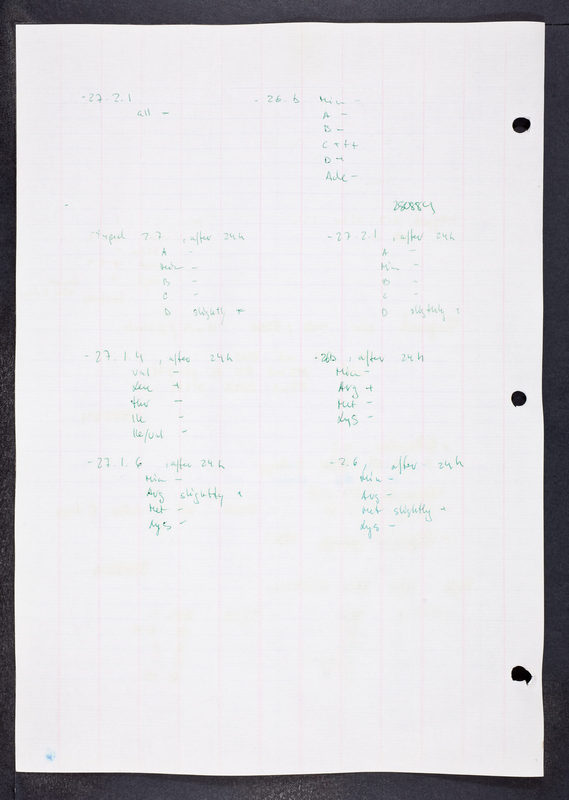 - 27.2.1
all -
- 26.b Min -
A -
B -
C +++
D +
Ade -
280884
7.7, after 24h
A -
Min -
B -
C -
D slightly +
- 27.2.1, after 24h
A -
Min -
B -
C -
D slightly +
- 27.1.4, after 24h
Val -
Leu +
Thr -
Ile -
Ile/Val -
- 26b, after 24h
Min -
Arg +
Met -
Lys -
- 27.1.6, after 24h
Min -
Arg slightly +
Met -
Lys -
- 2.6, after 24h
Min -
Arg -
Met slightly +
Lys -